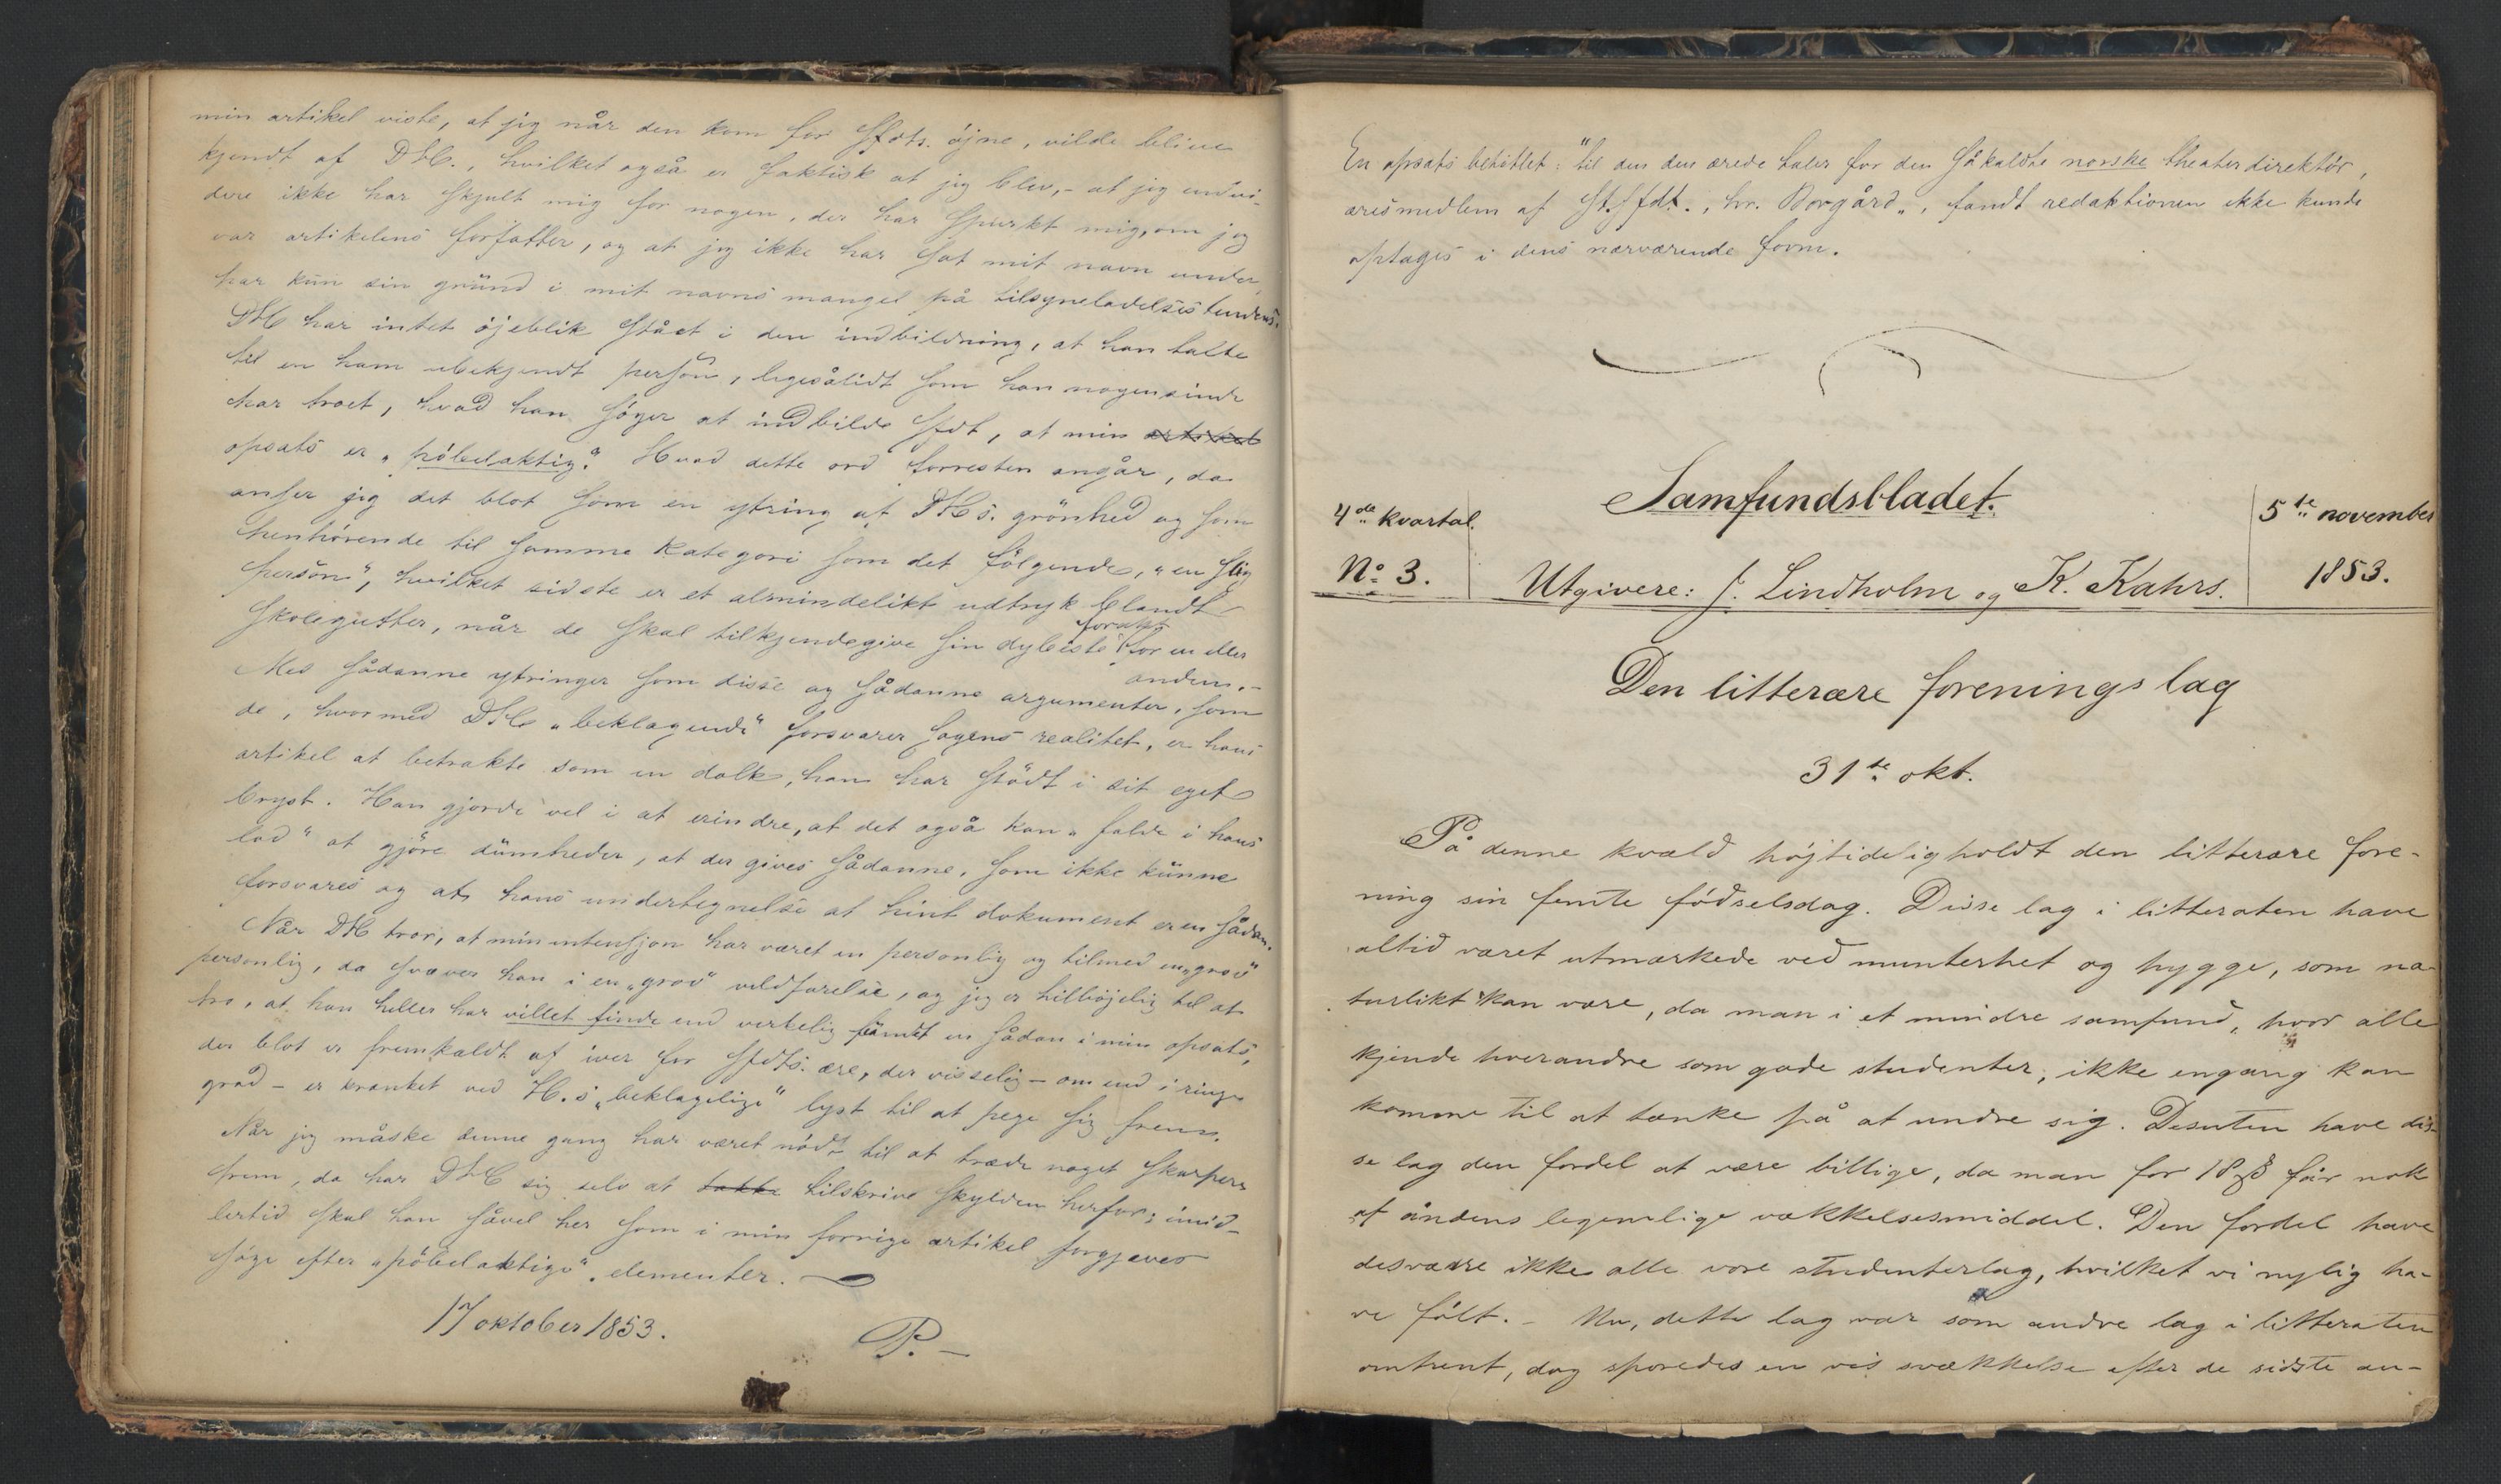 min artikel viste, at jeg når den kom for Sfdts. öjne, vilde blive
kjendt af DHC., hvilket også er faktisk at jeg blev, - at jeg endvi-
dere ikke har skjult mig for nogen, der har spurkt mig, om jeg
var artikelens forfatter, og at jeg ikke har sat mit navn under,
har kun sin grund i mit navns mangel på tilsyneladelsestendens.
DHC har intet öjeblik stået i den indbildning, at han talte
til en ham ubekjendt person, ligesålidt som han nogensinde
har troet, hvad han söger at indbilde Sfdt, at min artikel
opsats er „pöbelaktig." Hvad dette ord forresten angår, da
anser jeg det blot som en ytring af DHCs. grönhed og som
henhörende til samme kategori som det fölgende, „en slig
person", hvilket sidste er et almindelikt udtryk blandt
skolegutter, når de skal tilkjendegive sin dybeste forakt for en eller
anden. -
Med sådanne ytringer som disse og sådanne argumenter, som
de, hvormed DHC „beklagende" forsvarer sagens realitet, er hans
artikel at betrakte som en dolk, han har stödt i sit eget
bryst. Han gjorde vel i at erindre, at det også kan „falde i hans
lod" at gjöre dumheder, at der gives sådanne, som ikke kunne
forsvares og at hans undertegnelse af hint dokument er en sådan.
Når DHC tror, at min intensjon har været en personlig og tilmed en „grov"
personlig, da svæver han i en „grov" vildfarelse, og jeg er tilböjelig til at
tro, at han heller har villet finde end verkelig fundet en sådan i min opsats,
der blot er fremkaldt af iver for Sfdts. ære, der visselig - om end i ringe
grad - er krænket ved H.s „beklagelige" lyst til at pege sig frem.
Når jeg måske denne gang har været nödt til at træde noget skarpere
frem, da har DHC sig selv at takke tilskrive skylden herfor; imid-
lertid skal han såvel her som i min forrige artikel forgjeves
söge efter „pöbelaktige" elementer.
17 oktober 1853.
P. -
En opsats betitlet: "til den den ærede taler for den såkaldte norske theaterdirektör,
æresmedlem af St.Sfdt., hr. Borgård„, fandt redaktionen ikke kunde
optages i dens nærværende form.
4de kvartal.
No 3.
Samfundsbladet.
Utgivere: J. Lindholm og K. Kahrs.
5te november
1853.
Den litterære forenings lag
31te okt.
På denne kvæld höjtideligholdt den litterære fore-
ning sin femte födselsdag. Disse lag i litteraten have
altid været utmærkede ved munterhet og hygge, som na-
turlikt kan være, da man i et mindre samfund, hvor alle
kjende hverandre som gode studenter, ikke engang kan
komme til at tænke på at undre sig. Desuten have dis-
se lag den fordel at være billige, da man for 18 ß får nok
af åndens legemlige vækkelsesmiddel. Den fordel have
desværre ikke alle vore studenterlag, hvilket vi nylig ha-
ve fölt. - Nu, dette lag var som andre lag i litteraten
omtrent, dog sporedes en vis svækkelse efter de sidste an-